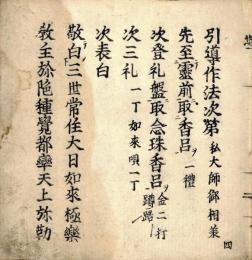 引導作法次第 私大師御相策
先至靈前取香呂 一禮
次登礼盤取念珠香呂ヲ金二打蹲踞
次三礼 一丁 如来唄 一丁
次表白
敬白三世常住大日如来極樂
教主弥陀種覺都率天上弥勒
四